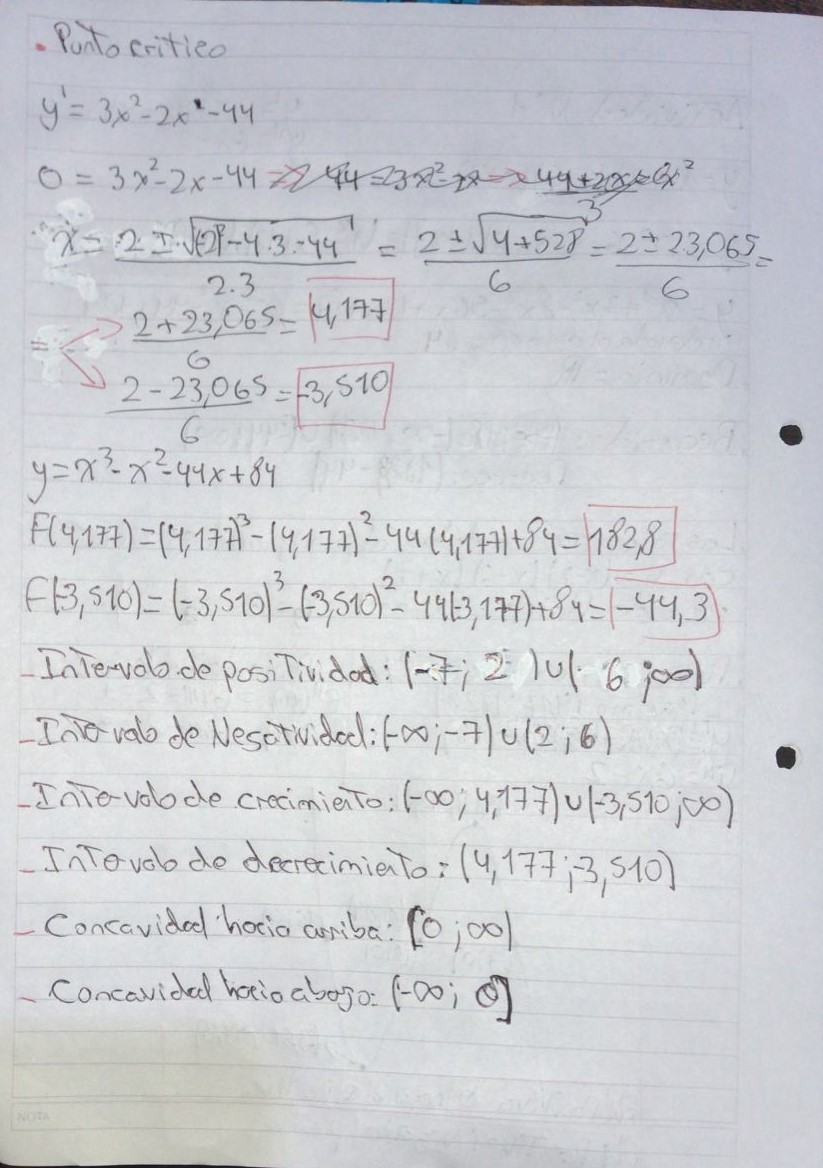 • Punto critico
y' = 3x²-2x-44
0 = 3x²-2x-44
x = 2 ± √(-2)²-4.3.-44 / 2.3 = 2 ± √4+528 / 6 = 2 ± 23,065 / 6 =
= 2+23,065 / 6 = 4,177
2-23,065 / 6 = -3,510
y=x³-x²-44x+84
F(4,177)=(4,177)³-(4,177)²-44(4,177)+84= 182,8
F(-3,510)=(-3,510)³-(-3,510)²-44(-3,177)+84= -44,3
- Intervalo de positividad: (-7; 2) ∪ (6;∞)
- Intervalo de Negatividad: (-∞;-7) ∪ (2;6)
- Intervalo de crecimiento: (-∞; 4,177) ∪ (-3,510;∞)
- Intervalo de decrecimiento: (4,177;-3,510)
- Concavidad hacia arriba: [0;∞)
- Concavidad hacia abajo: (-∞; 0]
NOTA